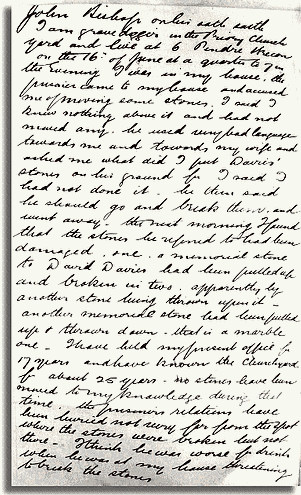 John Bishop on his oath saith
I am gravedigger in the Priory Church
yard and live at 6 Pendre Brecon
on the 16th of June at a quarter to 7 in
the Evening I was in my house. the
prisoner came to my house and accused
me of moving some stones. I said I
knew nothing above it and had not
moved any. he used very bad language
towards me and towards my wife and
asked me what did I put Davies'
stones on his ground for I said I
had not done it. he then said
he should go and break them, and
went away. the next morning I found
that the stones he referred to had been
damaged. one. a memorial stone
to David Davies had been pulled up
and broken in two. apparently by
another stone being thrown upon it -
another memorial stone had been pulled
up & thrown down - that is a marble
one - I have held my present office for
17 years and have known the Churchyard
for about 25 years. no stones have been
moved to my knowledge during that
time. the prisoners relations have
been buried not very far from the spot
where the stones were broken but not
there. I think he was worse for drink
when he was at my house threatening
to break the stones